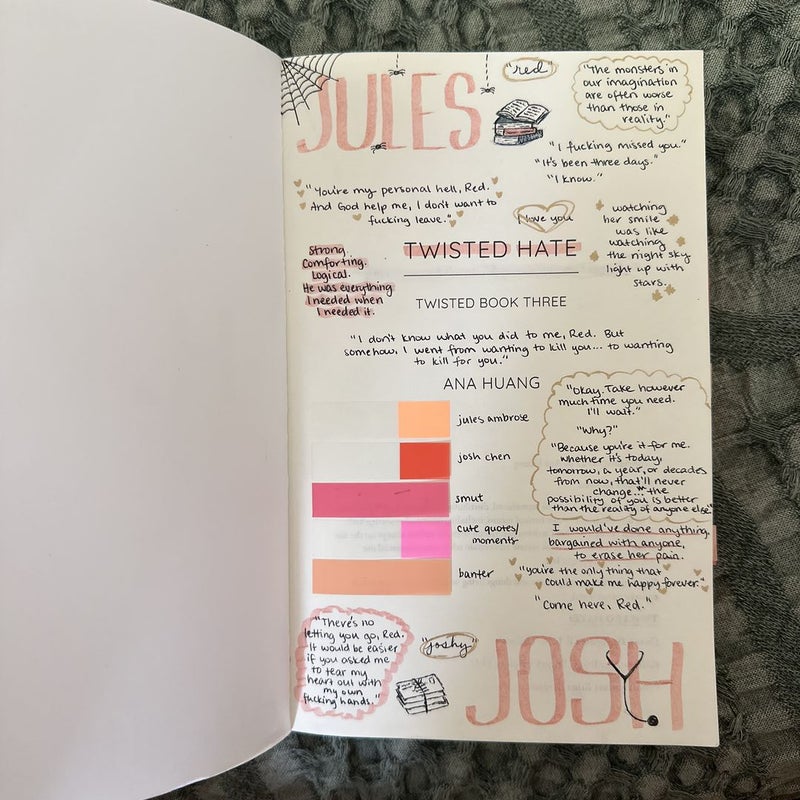 JULES
"red"
"The monsters in
our imagination
are often worse
than those in
reality."
"I fucking missed you."
"It's been three days."
"I know."
"You're my personal hell, Red.
And God help me, I don't want to
fucking leave."
I love you
watching
her smile
was like
watching
the night sky
light up with
stars.
Strong.
Comforting.
Logical.
He was everything
I needed when
I needed it.
TWISTED HATE
TWISTED BOOK THREE
"I don't know what you did to me, Red. But
somehow, I went from wanting to kill you... to wanting
to kill for you."
ANA HUANG
jules ambrose
josh chen
smut
cute quotes/
moments
banter
"Okay. Take however
much time you need.
I'll wait."
"Why?"
"Because you're it for me.
Whether it's today,
tomorrow, a year, or decades
from now, that'll never
change..." "the
possibility of you is better
than the reality of anyone else."
I would've done anything,
bargained with anyone,
to erase her pain.
"you're the only thing that
could make me happy forever."
"Come here, Red."
"There's no
letting you go, Red.
It would be easier
if you asked me
to tear my
heart out with
my own
fucking hands."
"joshy"
JOSH